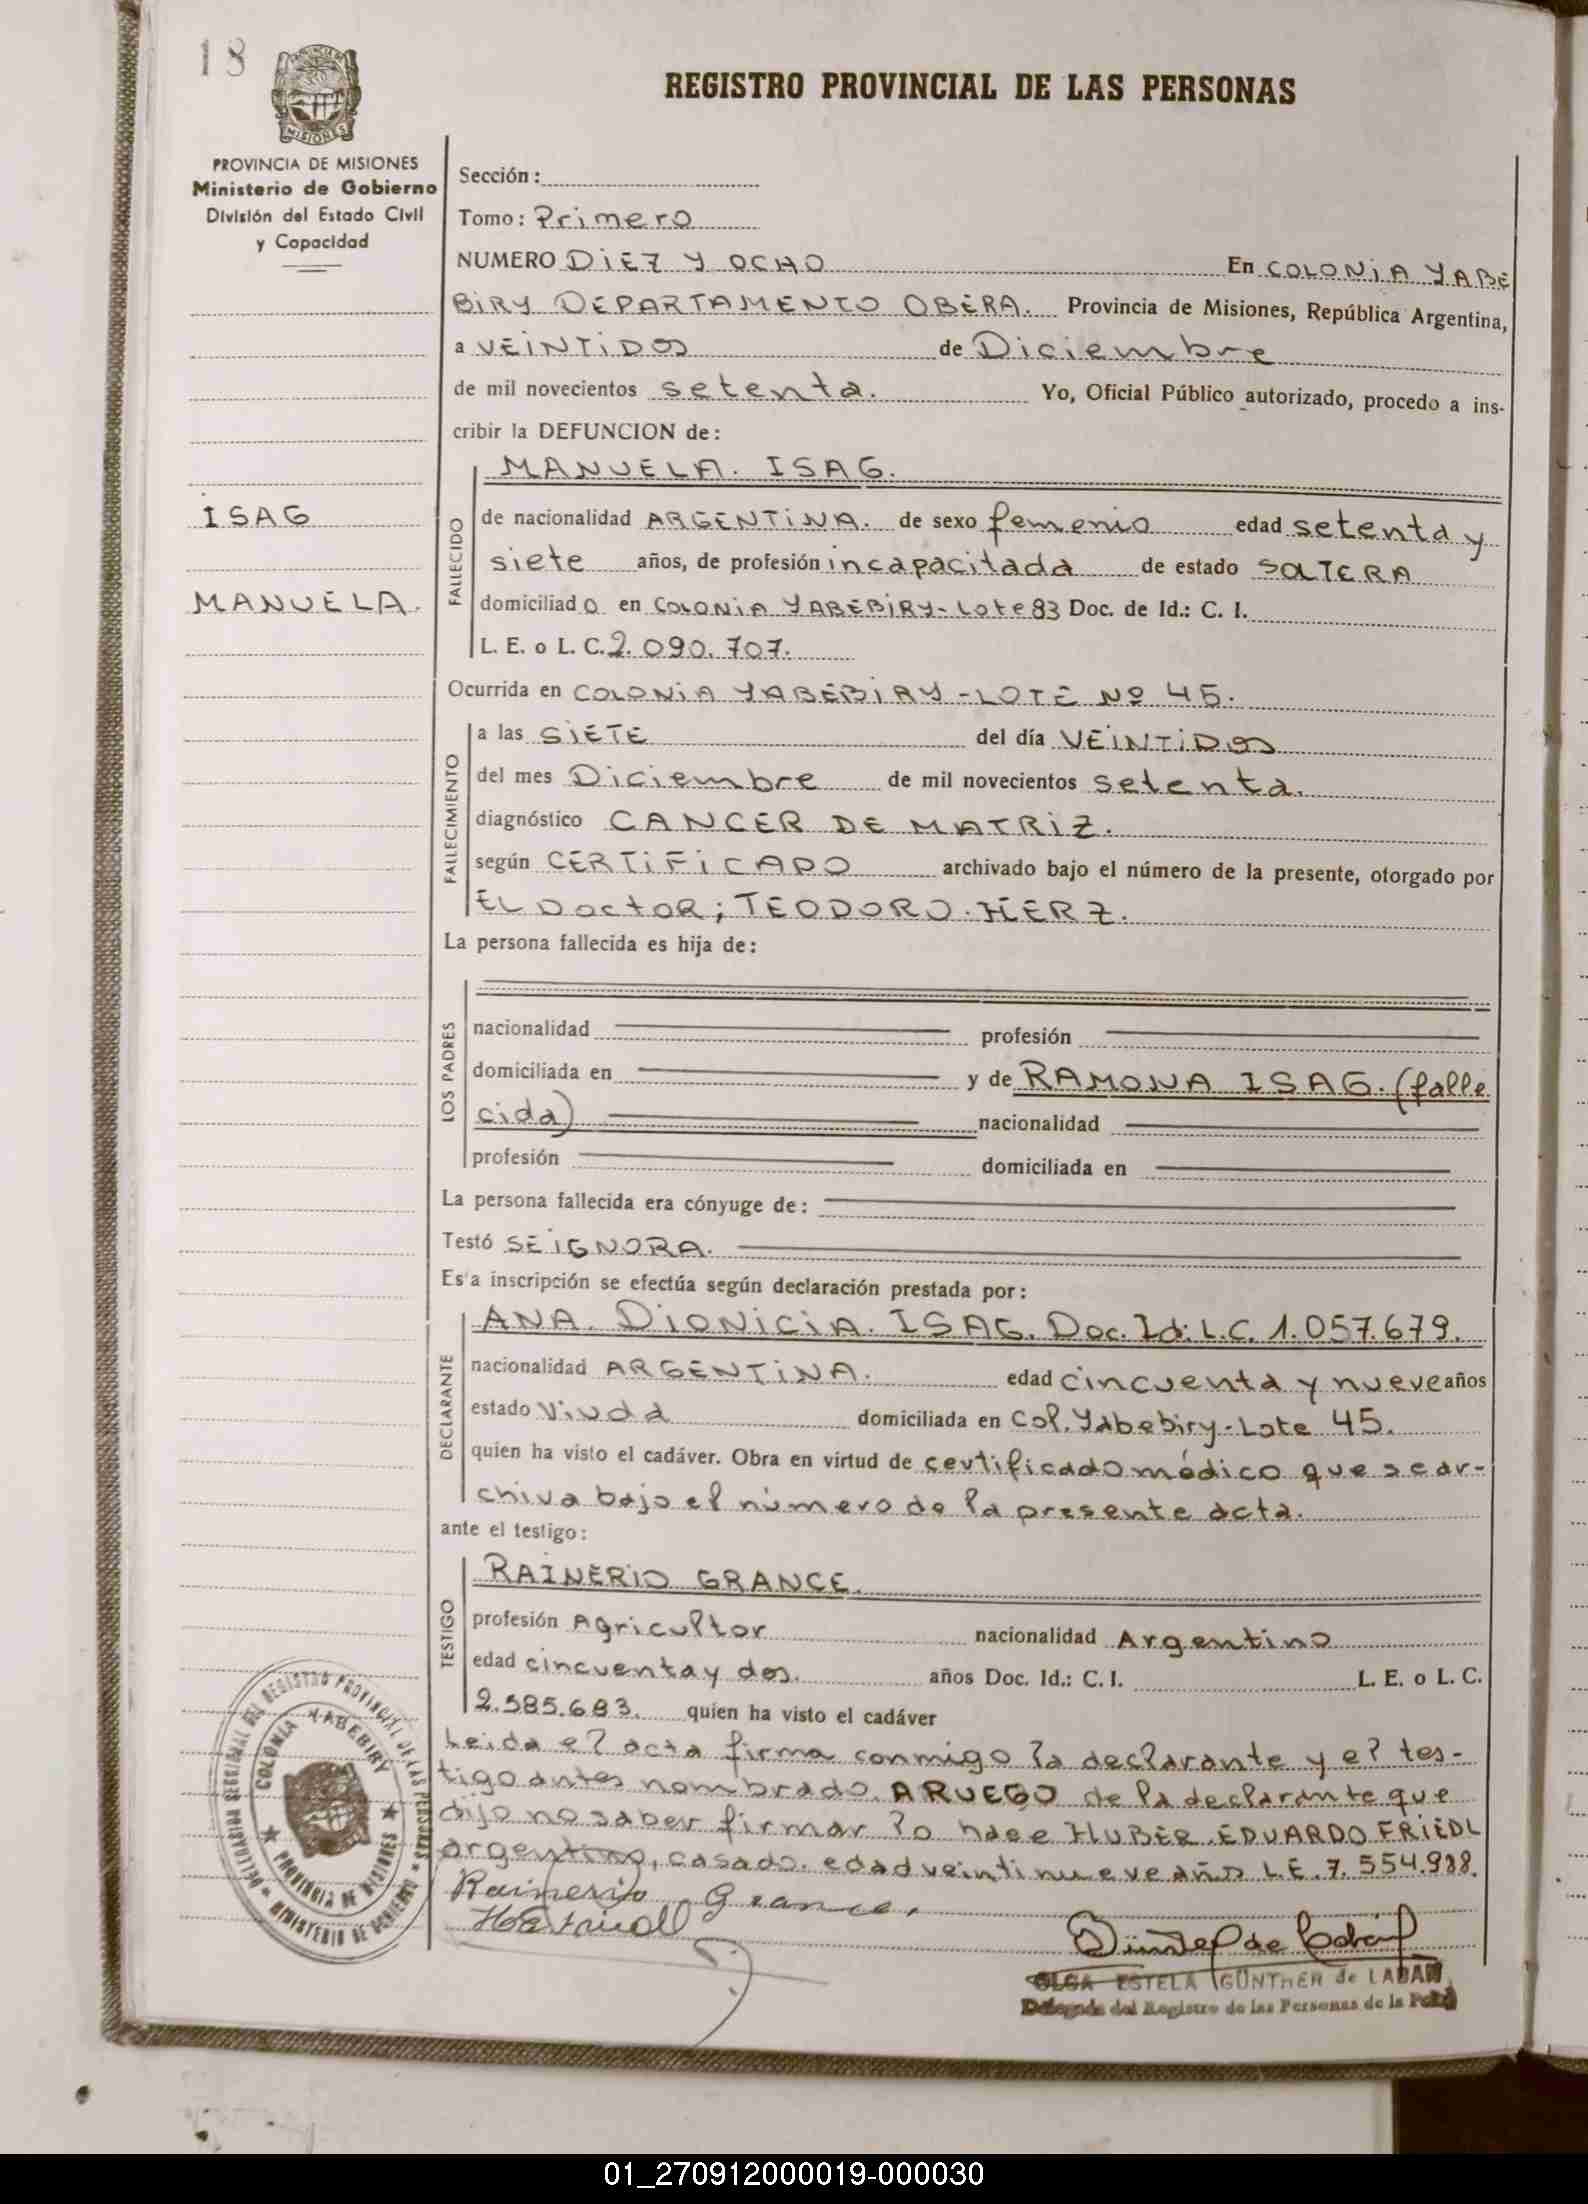 18
REGISTRO PROVINCIAL DE LAS PERSONAS
PROVINCIA DE MISIONES
Ministerio de Gobierno
División del Estado Civil
y Capacidad
Sección:
Tomo: Primero
NUMERO DIEZ Y OCHO En COLONIA YABE
BIRY DEPARTAMENTO OBERA. Provincia de Misiones, República Argentina,
a VEINTIDOS de Diciembre
de mil novecientos setenta. Yo, Oficial Público autorizado, procedo a ins-
cribir la DEFUNCION de:
MANUELA. ISAG.
ISAG
MANUELA.
FALLECIDO
de nacionalidad ARGENTINA. de sexo femenio edad setenta y
siete años, de profesión incapacitada de estado SOLTERA
domiciliado en COLONIA YABEBIRY-Lote 83 Doc. de Id.: C. I.
L. E. o L. C. 2.090.707.
Ocurrida en COLONIA YABEBIRY-LOTE Nº 45.
FALLECIMIENTO
a las SIETE del día VEINTIDOS
del mes Diciembre de mil novecientos setenta.
diagnóstico CANCER DE MATRIZ.
según CERTIFICADO archivado bajo el número de la presente, otorgado por
EL DoctoR; TEODORO. HERZ.
La persona fallecida es hija de:
LOS PADRES
nacionalidad profesión
domiciliada en y de RAMONA ISAG. (falle
cida) nacionalidad
profesión domiciliada en
La persona fallecida era cónyuge de:
Testó SE IGNORA.
Esta inscripción se efectúa según declaración prestada por:
DECLARANTE
ANA. DIONICIA. ISAG. Doc. Id: L.C. 1.057.679.
nacionalidad ARGENTINA. edad cincuenta y nueve años
estado Viuda domiciliada en Col. Yabebiry-Lote 45.
quien ha visto el cadáver. Obra en virtud de certificado médico que se ar-
chiva bajo el número de la presente acta.
ante el testigo:
TESTIGO
RAINERIO GRANCE.
profesión Agricultor nacionalidad Argentino
edad cincuenta y dos. años Doc. Id.: C. I. L. E. o L. C.
2.585.683. quien ha visto el cadáver
Leida el acta firma conmigo la declarante y el tes-
tigo antes nombrado. ARUEGO de la declarante que
dijo no saber firmar lo hace HUBER EDUARDO FRIEDL
argentino, casado. edad veintinueve años L.E. 7.554.988.
Rainerio Grance.
OLGA ESTELA GÜNTHER de LABAN
Delegada del Registro de las Personas de la
DELEGACION REGIONAL DEL REGISTRO PROVINCIAL DE LAS PERSONAS
MINISTERIO DE GOBIERNO
COLONIA YABEBIRY
PROVINCIA DE MISIONES
01_270912000019-000030